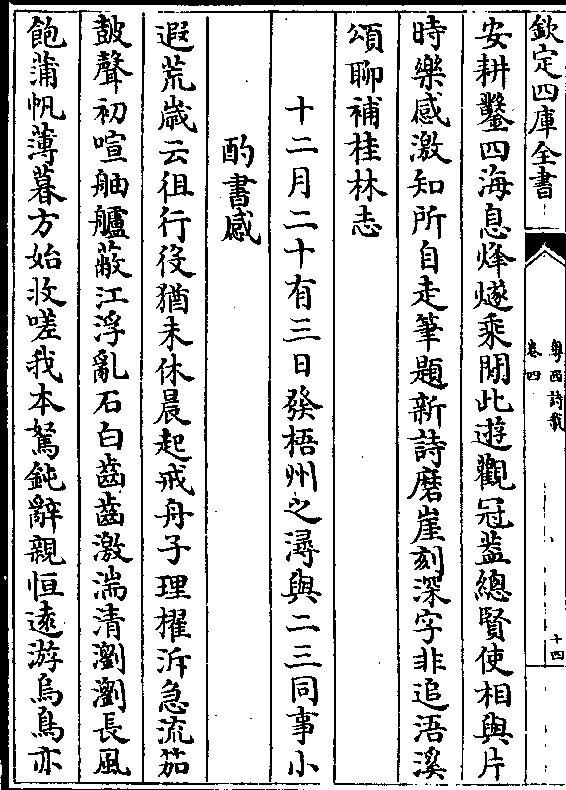 欽定四庫全書
粵西詩載
卷四
十四
安耕鑿四海息烽燧乘閒此遊觀冠葢總賢使相與片
時樂感激知所自走筆題新詩磨崖刻深字非追浯溪
頌聊補桂林志
十二月二十有三日發梧州之潯與二三同事小
酌書感
遐荒歳云徂行役猶未休晨起戒舟子理櫂泝急流茄
鼓聲初喧舳艫蔽江浮亂石白齒齒激湍清瀏瀏長風
飽蒲帆薄暮方始收嗟我本駑鈍辭親恒逺游烏鳥亦